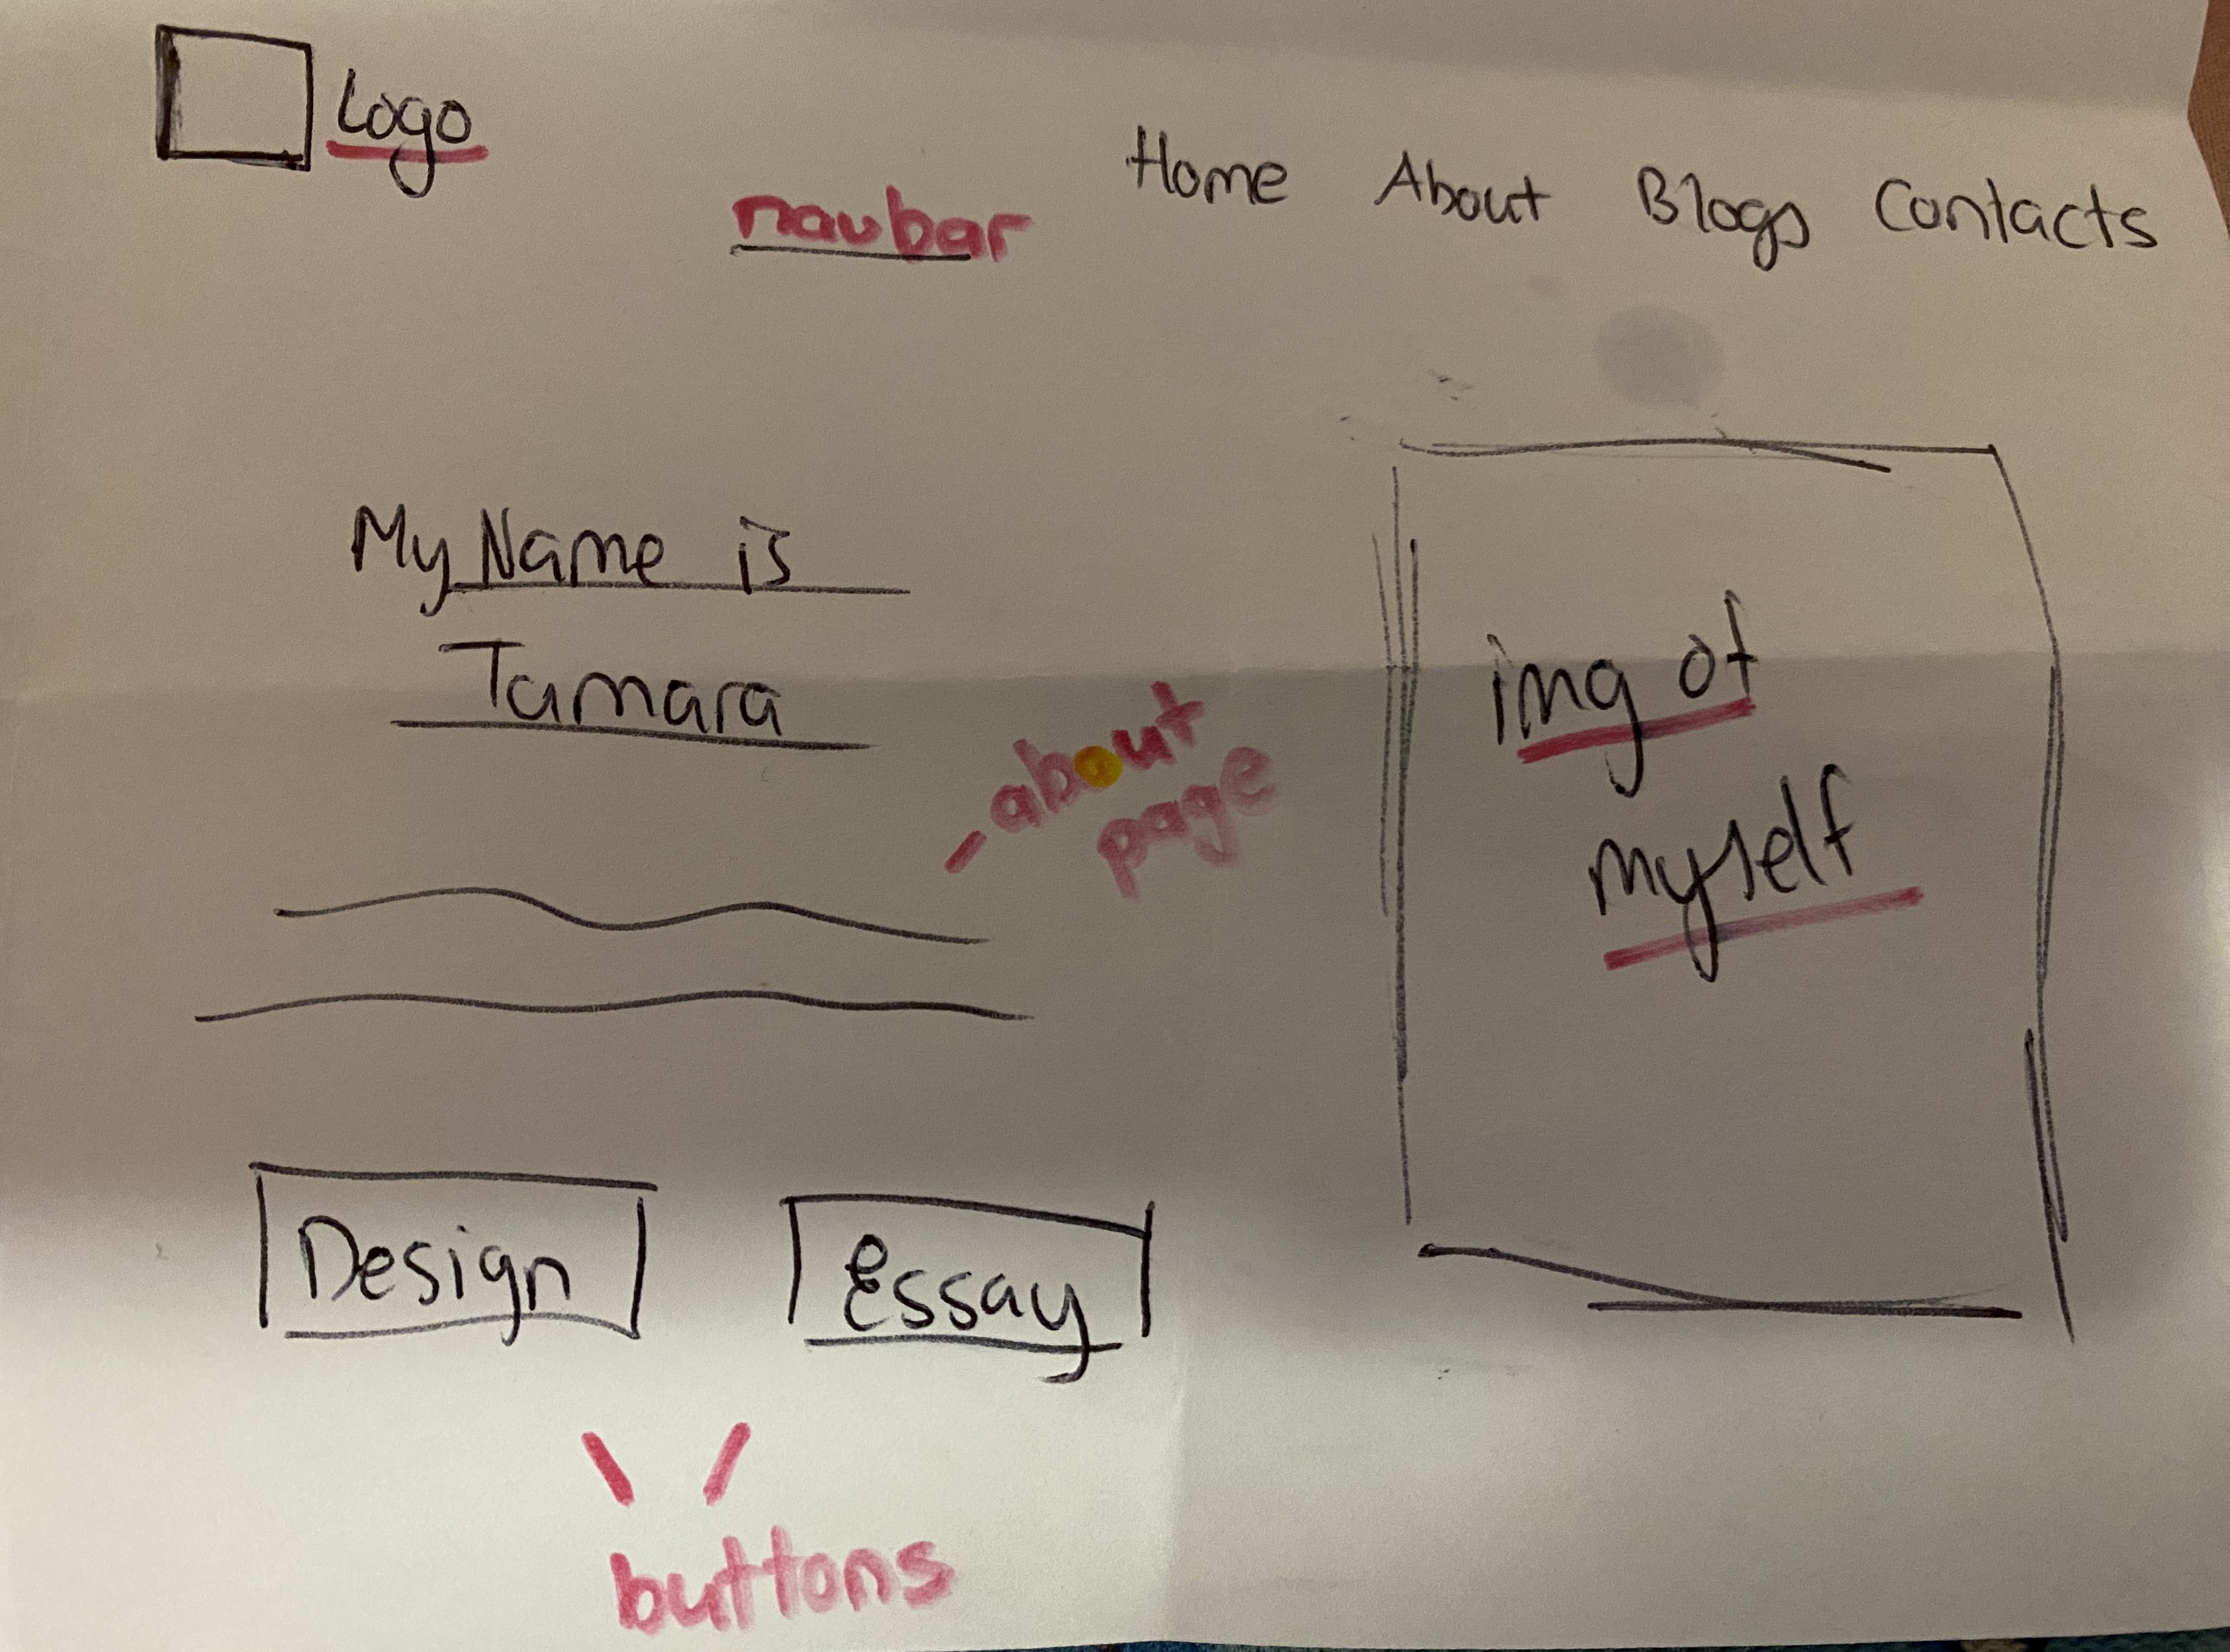 Logo
Home About Blogs Contacts
navbar
My Name is
Tamara
about
page
img of
myself
Design
Essay
buttons